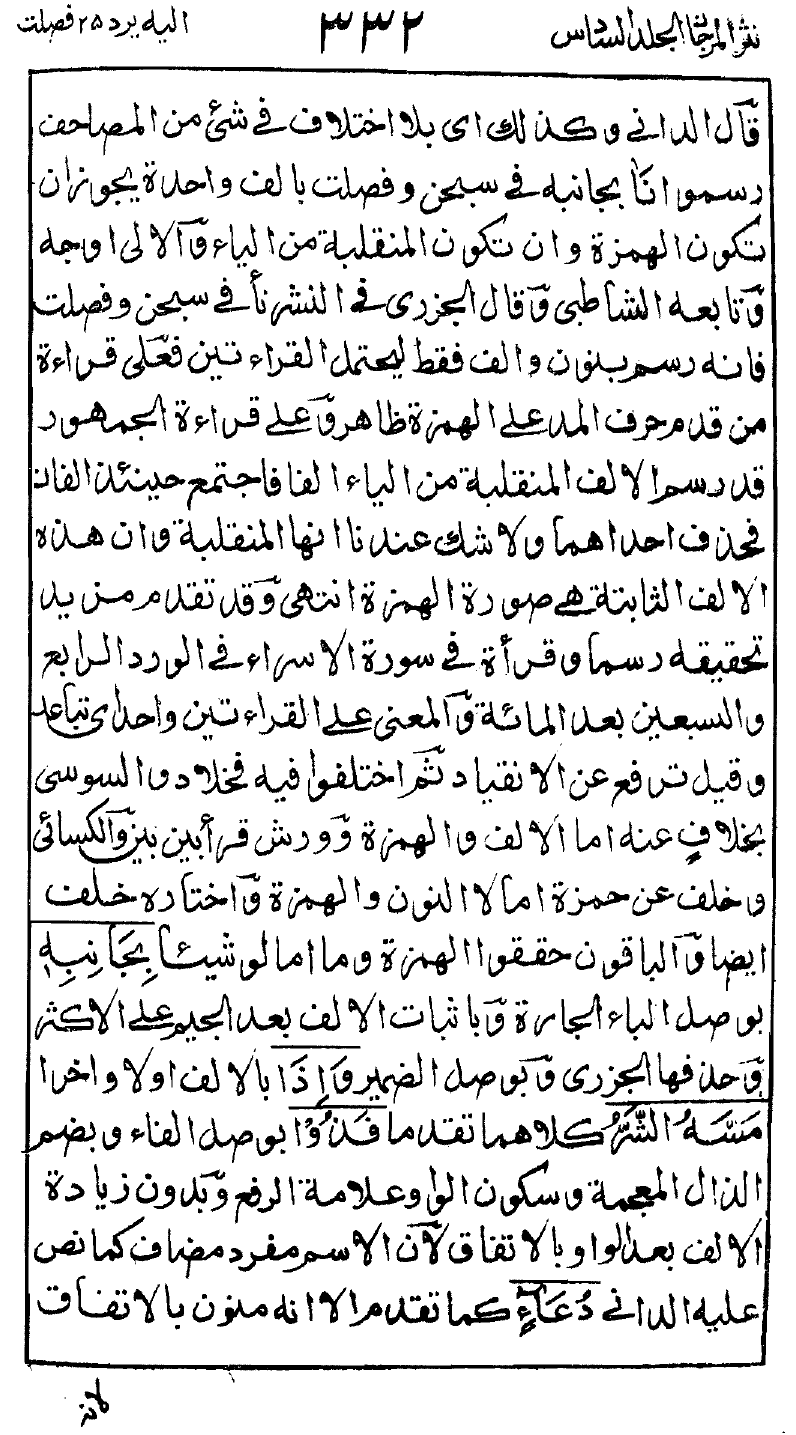 نثر المرجان الجلد السادس ٣٣٢ اليه يرد ٢٥ فصلت
قال الداني وكذلك اى بلا اختلاف في شئ من المصاحف
رسموا نَاٰ بجانبه في سبحن وفصلت بالف واحدة يجوز ان
تكون الهمزة وان تكون المنقلبة من الياء وَالاولى اوجه
وَتابعه الشاطبى وَقال الجزرى في النشر نأ في سبحن وفصلت
فانه رسم بنون والف فقط ليحتمل القراءتين فعَلى قراءة
من قدم حرف المد على الهمزة ظاهر وَعلى قراءة الجمهور
قد رسم الالف المنقلبة من الياء الفا فاجتمع حينئذ الفان
فحذف احداهما ولا شك عندنا انها المنقلبة وان هذه
الالف الثابتة هي صورة الهمزة انتهى وَقد تقدم مزيد
تحقيقه رسما وقرأة في سورة الاسراء في الورد الرابع
والسبعين بعد المائة وَالمعنى على القراءتين واحد اى تباعد
وقيل ترفع عن الانقياد ثَم اختلفوا فيه فخلاد والسوسى
بخلافٍ عنه اما الالف والهمزة وَورش قرأ بين بين وَالكسائى
وخلف عن حمزة امالا النون والهمزة وَاختاره خلف
ايضا وَالباقون حققوا الهمزة وما امالو شيئا بِجَانِبِهٖ
بوصل الباء الجارة وَباثبات الالف بعد الجيم على الاكثر
وَحذفها الجزرى وَبوصل الضمير وَاِذَا بالالف اولا واخرا
مَسَّهُ الشَّرُّ كلاهما تقدما فَذُوْا بوصل الفاء وبضم
الذال المعجمة وسكون الواو علامة الرفع وَبدون زيادة
الالف بعد الواو بالاتفاق لاَن الاسم مفرد مضاف كما نص
عليه الداني دُعَآءٍ كما تقدم الا انه منون بالاتفاق
لانه